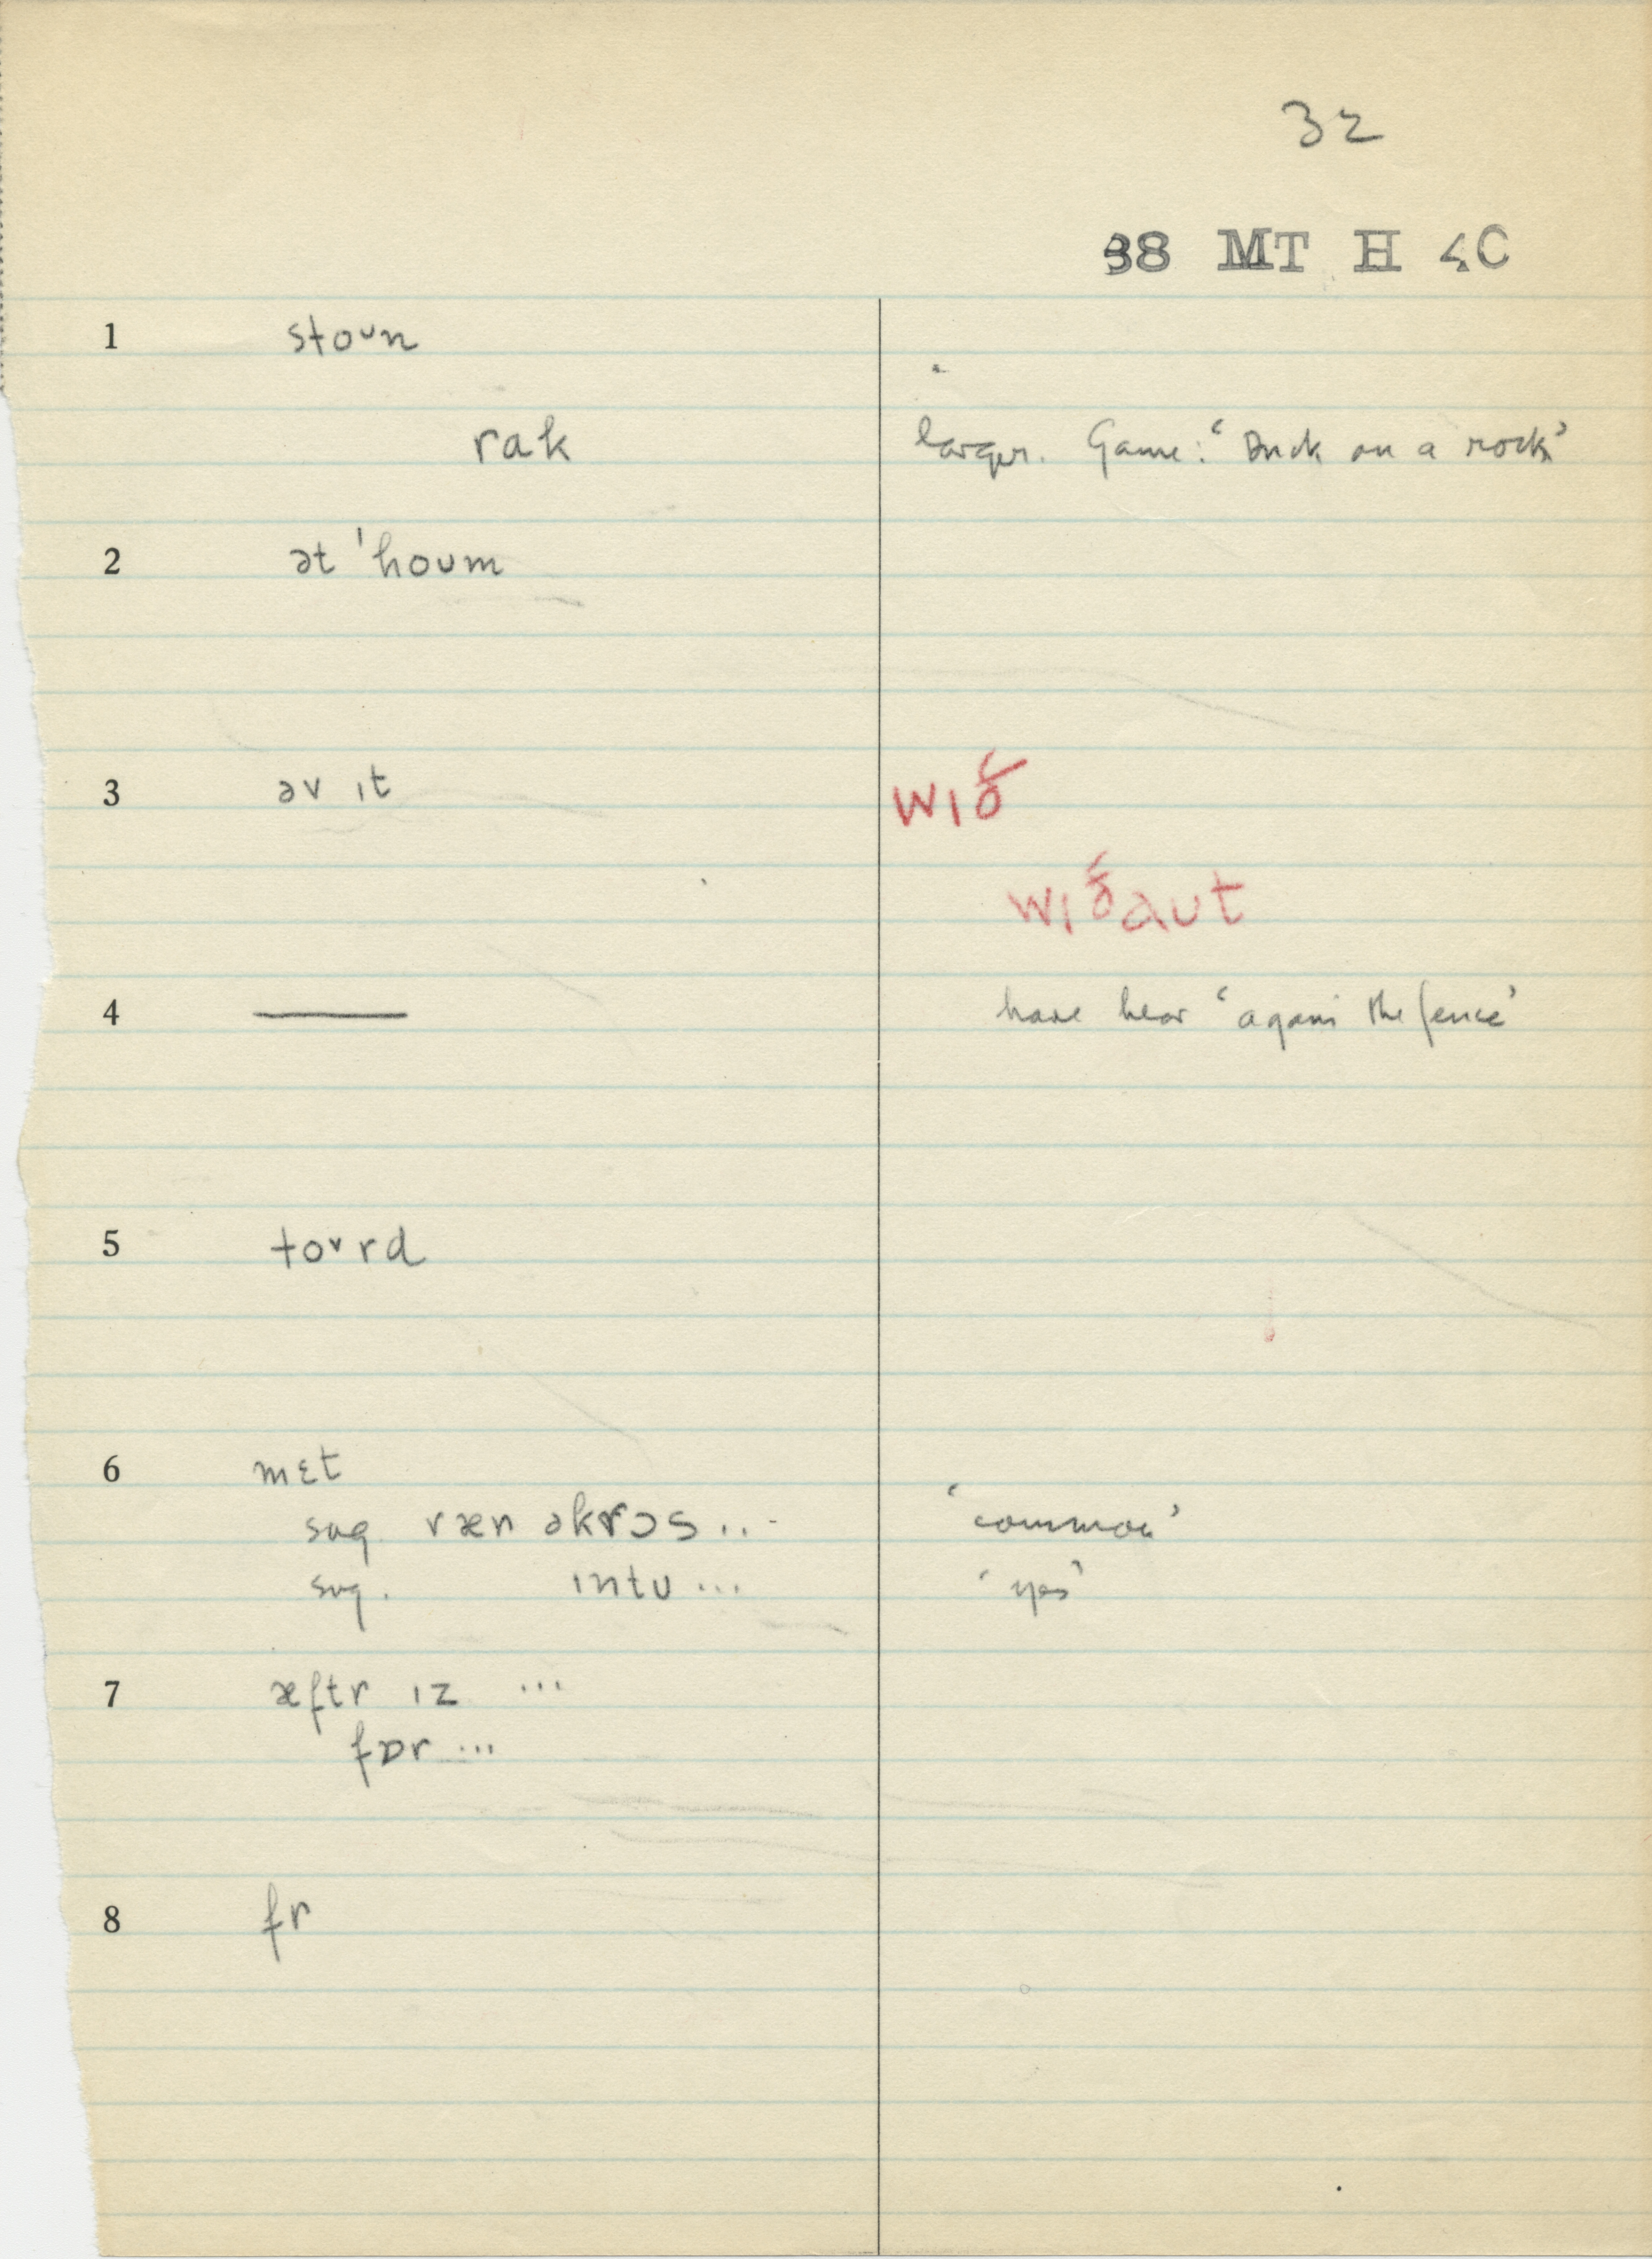 32
38 MT H 4C
1 stoᴜn
rak larger. Game: ‘Duck on a rock’
2 ət ˈhoᴜm
3 əv ɪt wɪð
wɪðaᴜt
4 — have hear ‘again the fence’
5 toᵛrd
6 mɛt
sug. ræn əkrɔs... ‘common’
sug. ɪntᴜ... ‘yes’
7 æftr ɪz ...
fɒr ...
8 fr